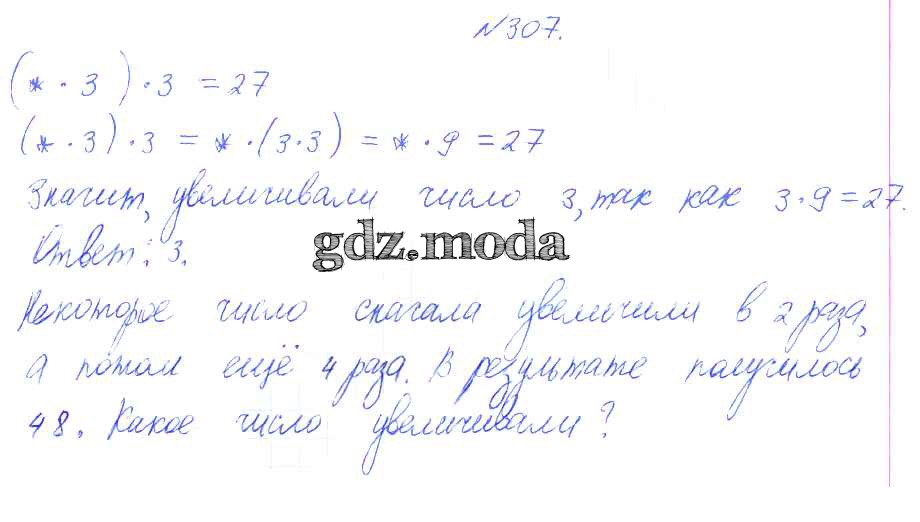 №307.
(* · 3 ) · 3 = 27
(* · 3) · 3 = * · (3 · 3) = * · 9 = 27
Значит, увеличивали число 3, так как 3 · 9 = 27.
Ответ: 3.
gdz.moda
Некоторое число сначала увеличили в 2 раза,
а потом ещё 4 раза. В результате получилось
48. Какое число увеличивали?